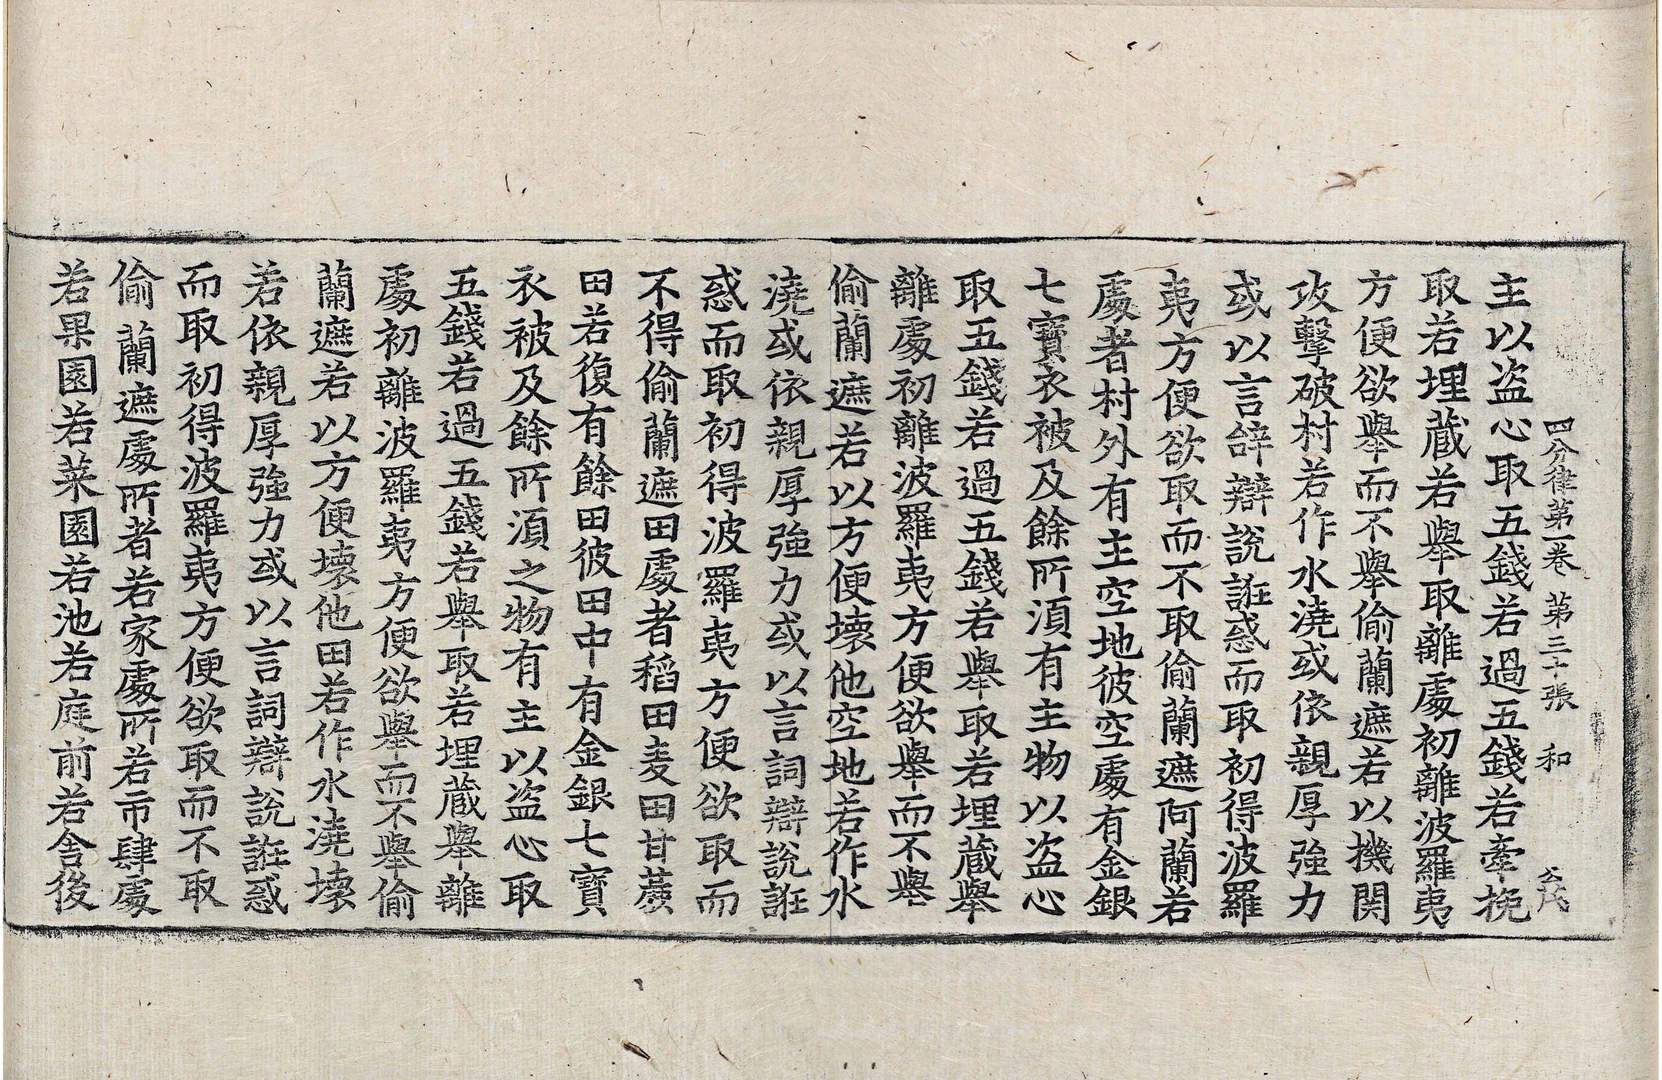 四分律第一卷 第三十張 和
主以盜心取五錢若過五錢若牽挽
取若埋藏若舉取離處初離波羅夷
方便欲舉而不舉偷蘭遮若以機關
攻擊破村若作水澆或依親厚強力
或以言辞辯說誑惑而取初得波羅
夷方便欲取而不取偷蘭遮阿蘭若
處者村外有主空地彼空處有金銀
七寶衣被及餘所湏有主物以盜心
取五錢若過五錢若舉取若埋藏舉
離處初離波羅夷方便欲舉而不舉
偷蘭遮若以方便壞他空地若作水
澆或依親厚強力或以言詞辯說誑
惑而取初得波羅夷方便欲取而
不得偷蘭遮田處者稻田麦田甘蔗
田若復有餘田彼田中有金銀七寶
衣被及餘所湏之物有主以盜心取
五錢若過五錢若舉取若埋藏舉離
處初離波羅夷方便欲舉而不舉偷
蘭遮若以方便壞他田若作水澆壞
若依親厚強力或以言詞辯說誑惑
而取初得波羅夷方便欲取而不取
偷蘭遮處所者若家處所若市肆處
若果園若菜園若池若庭前若舍後